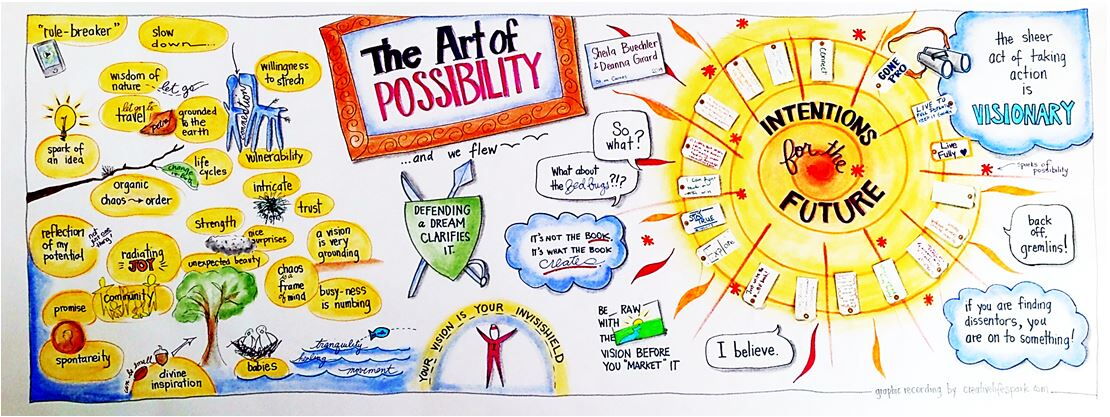 "rule-breaker"
slow
down...
wisdom of
nature
let go
willingness
to strech
let go to
travel
grounded
to the
earth
connection
spark of
an idea
change
life
cycles
vulnerability
organic
chaos → order
intricate
trust
reflection
of my
potential
strength
nice
surprises
a vision
is very
grounding
radiating
JOY
unexpected beauty
chaos
frame
of mind
busy-ness
is numbing
promise
community
spontaneity
can be small
divine
inspiration
babies
tranquility
healing
movement
The Art of
POSSIBILITY
Sheila Buechler
& Deanna Girard
...and we flew
DEFENDING
A DREAM
CLARIFIES
IT.
So
what?
What about
the Bed bugs?!?
IT'S NOT THE BOOK.
IT'S WHAT THE BOOK
creates.
YOUR VISION IS YOUR INVISISHIELD
BE RAW
WITH
THE
VISION BEFORE
YOU "MARKET" IT
I believe.
INTENTIONS
for the
FUTURE
Connect
GONE
PRO
LIVE TO
Live
Fully ♥
sparks of
possibility
the sheer
act of taking
action
is
VISIONARY
back
off,
gremlins!
if you are finding
dissentors, you
are on to something!
graphic recording by creativelifespark.com